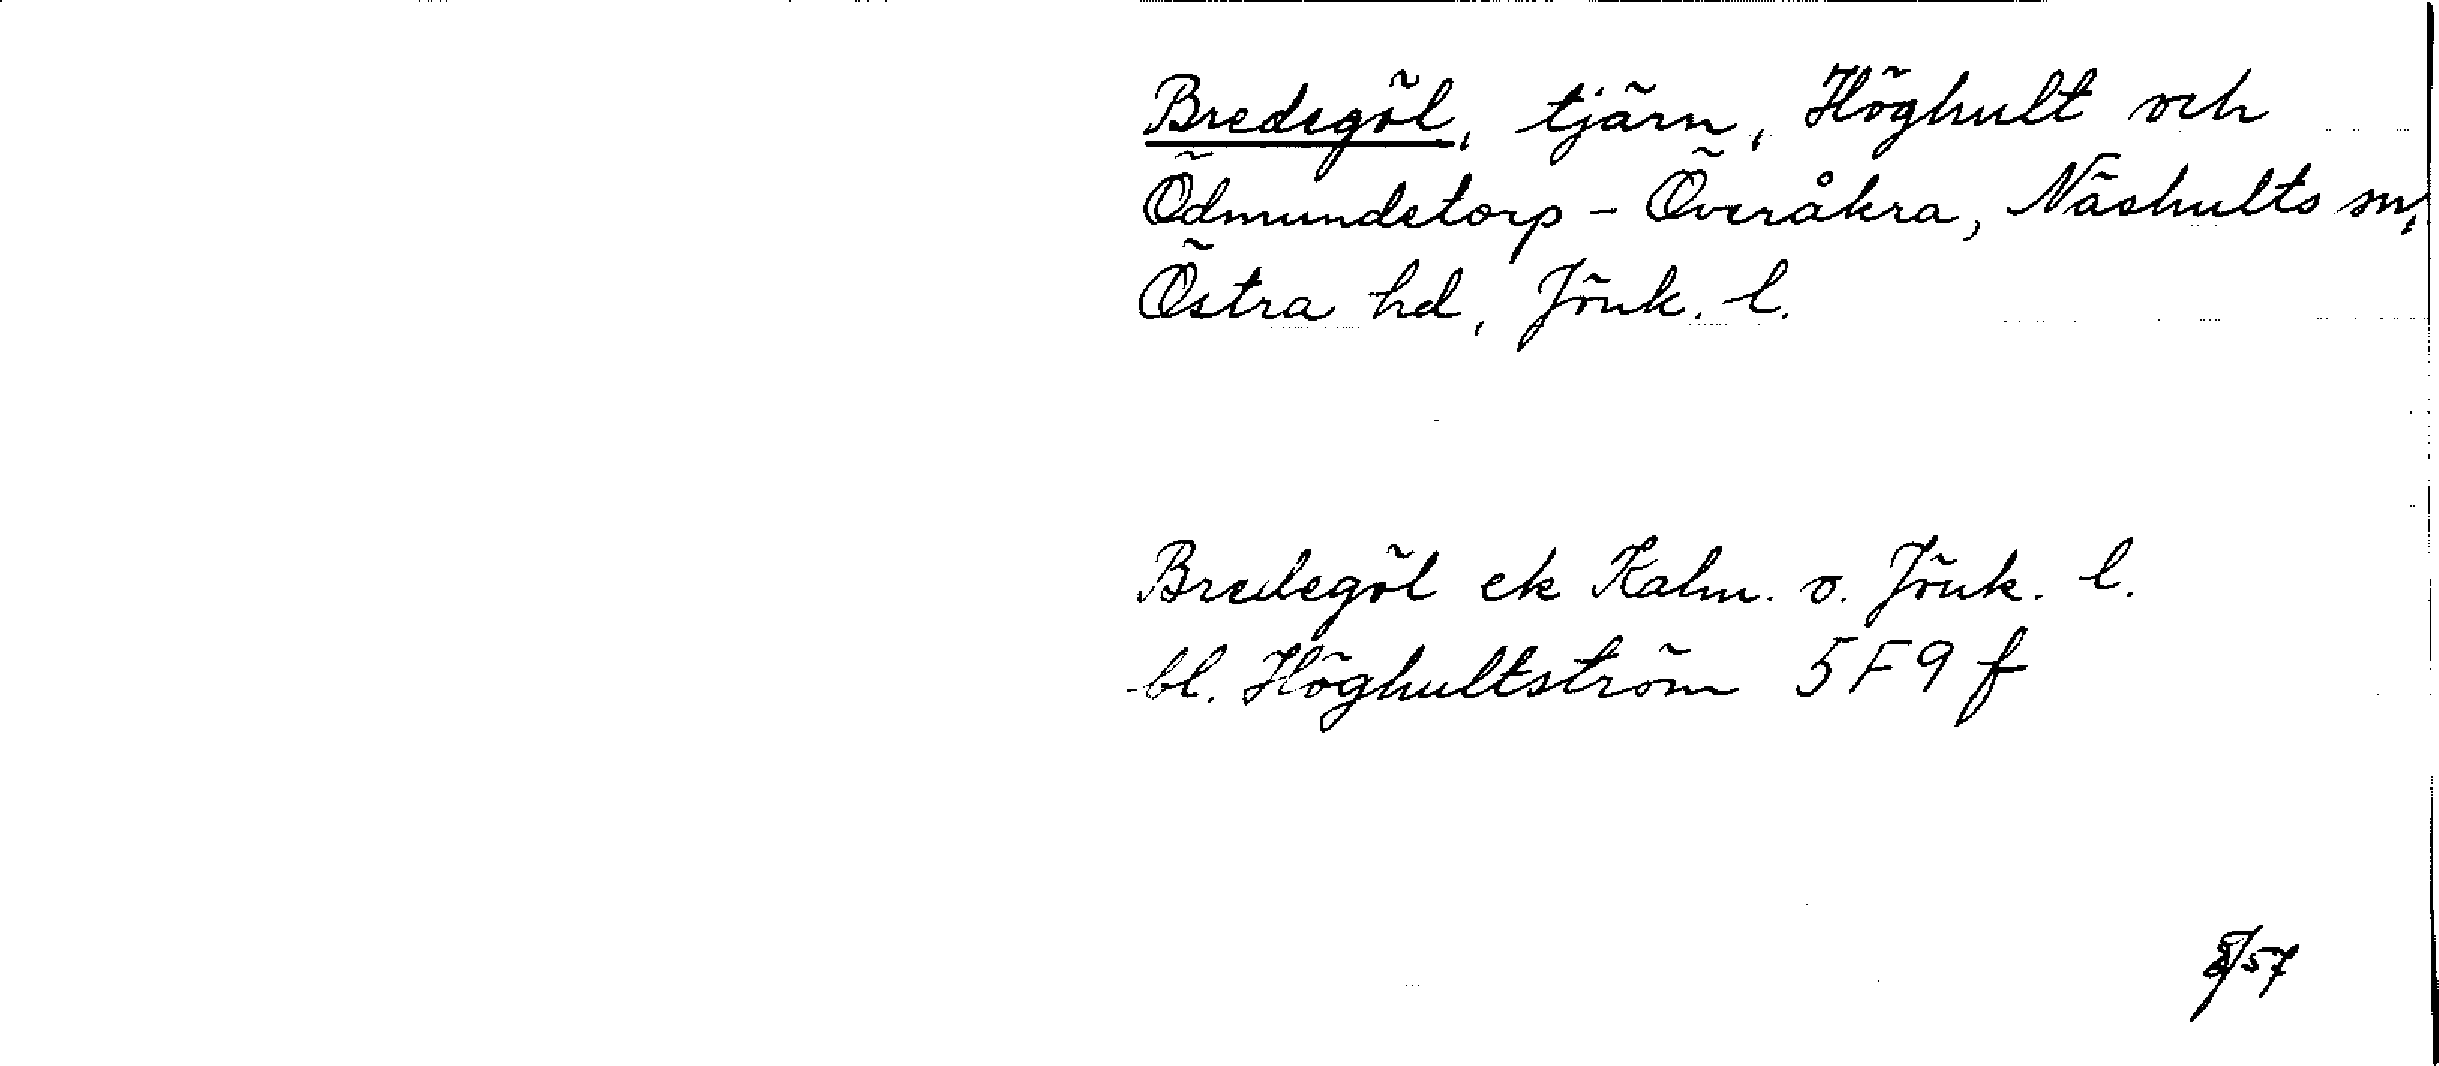 Bredegöl, tjärn, Höghult och
Ödmundetorp - Överåkra, Näshults sn,
Östra hd, Jönk. l.
Bredegöl ek Kalm. o. Jönk. l.
bl. Höghultström 5F9f
/57